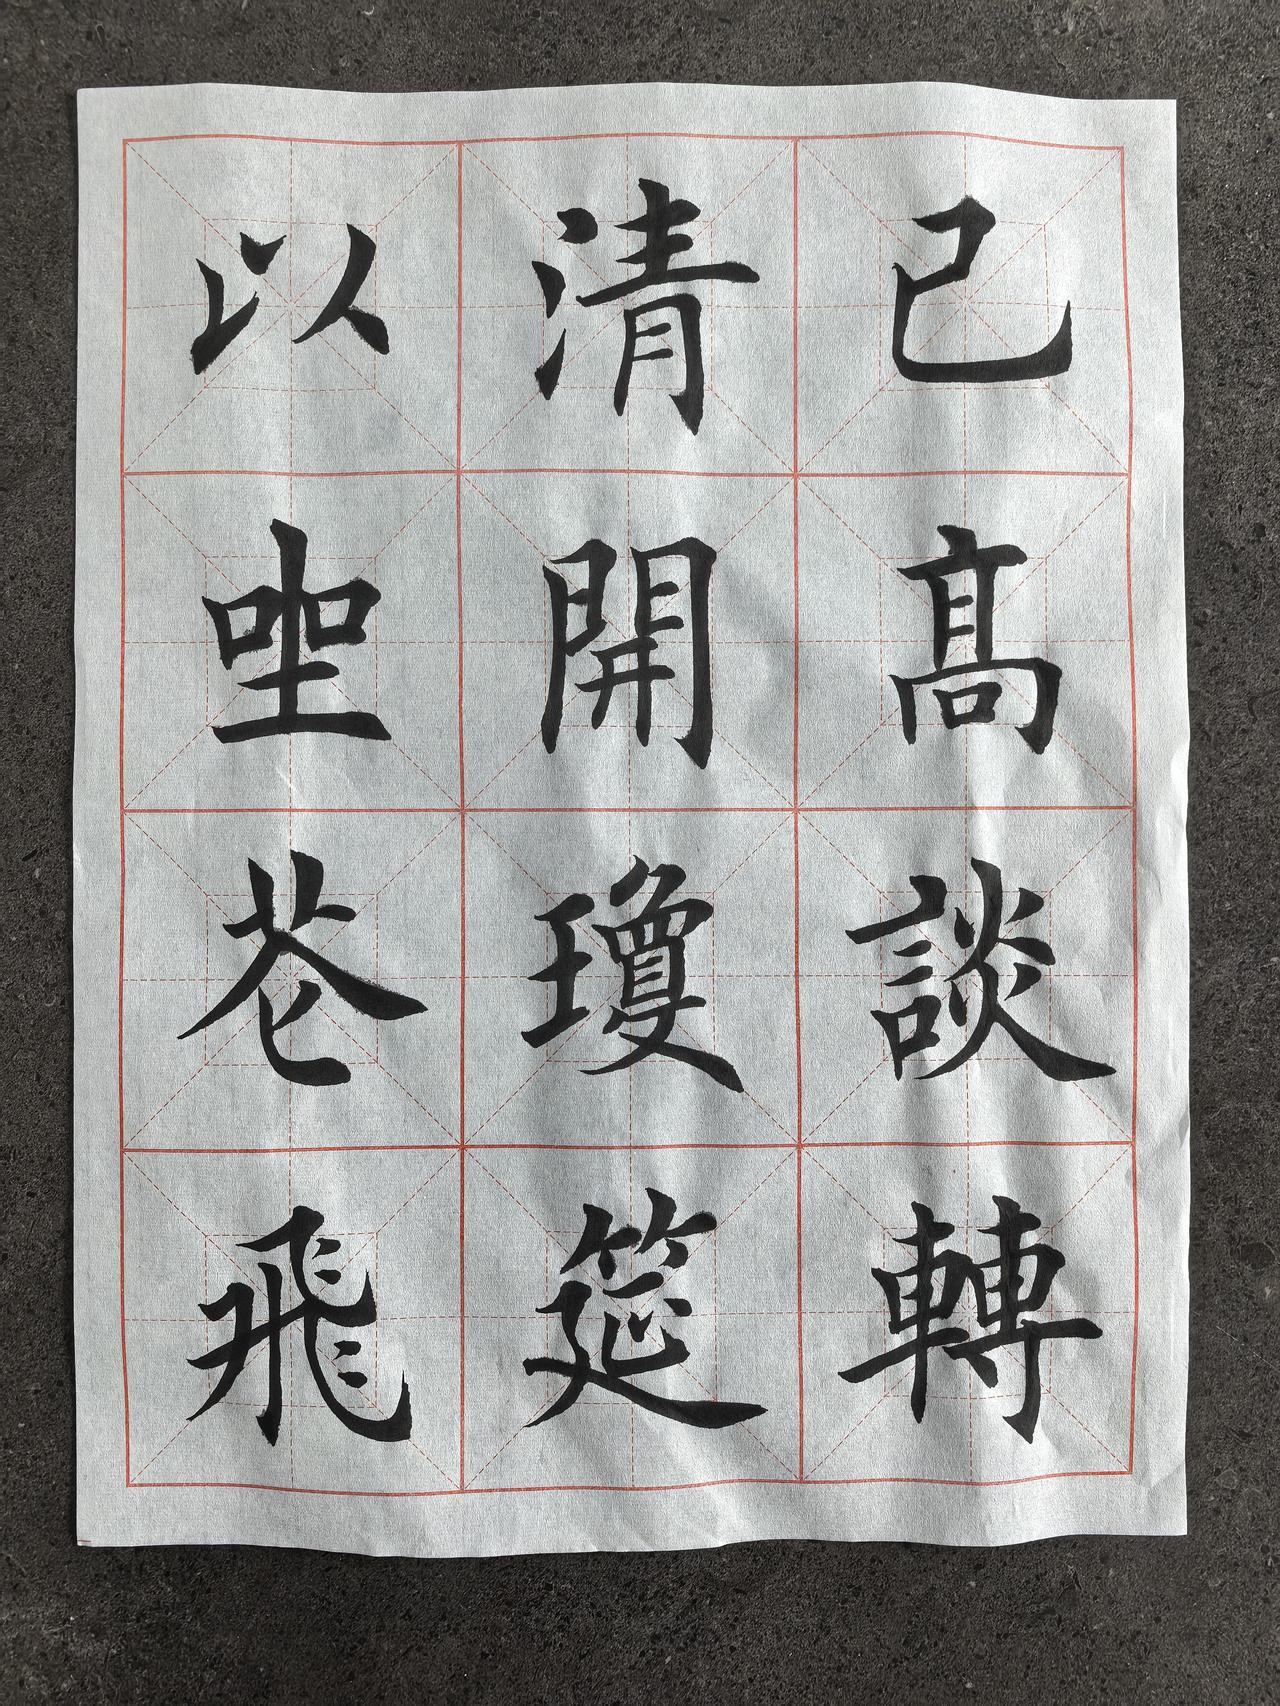 已高談轉
清開瓊筵
以坐花飛